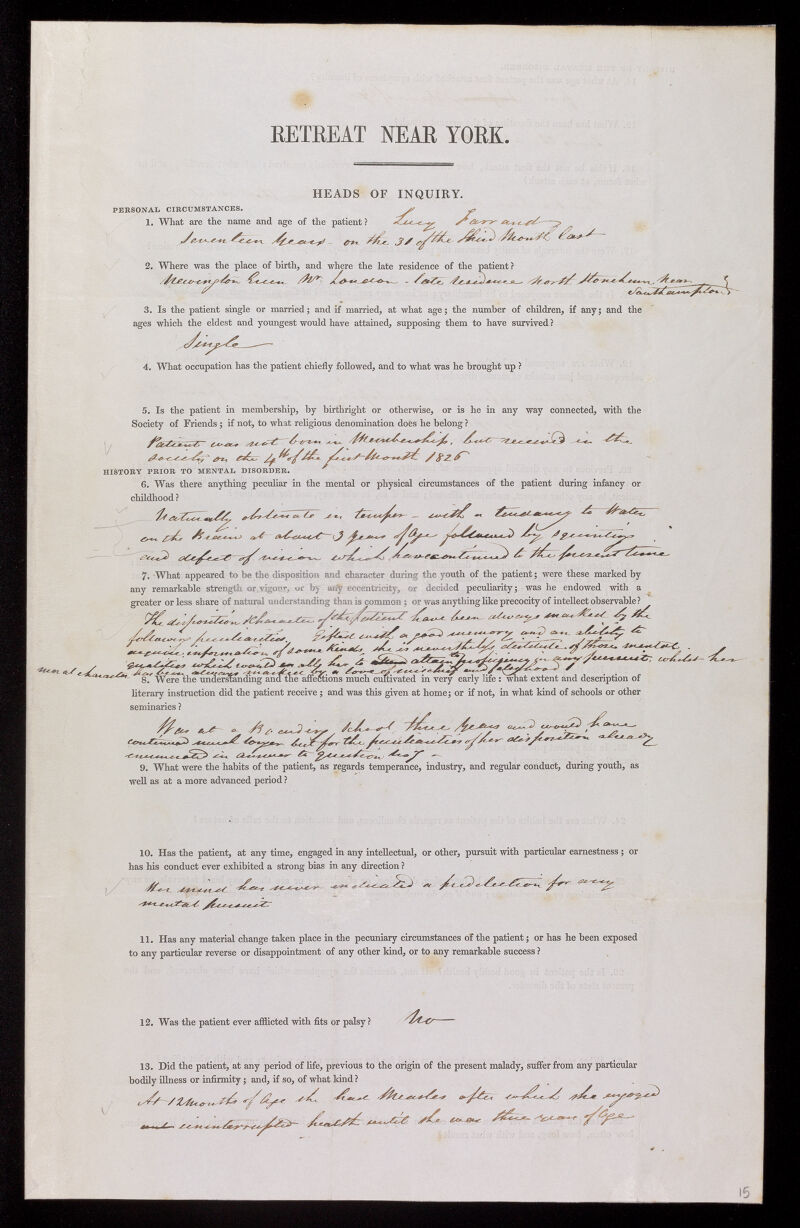 RETREAT NEAR YORK.
HEADS OF INQUIRY.
PERSONAL CIRCUMSTANCES.
1. What are the name and age of the patient? Lucy Farrand
Seventeen Years - on the 31 of the third Month last
2. Where was the place of birth, and where the late residence of the patient?
Newington Green Nr. London - late residence North Stoneham near
Southampton
3. Is the patient single or married; and if married, at what age; the number of children, if any; and the
ages which the eldest and youngest would have attained, supposing them to have survived?
Single
4. What occupation has the patient chiefly followed, and to what was he brought up?
5. Is the patient in membership, by birthright or otherwise, or is he in any way connected, with the
Society of Friends; if not, to what religious denomination does he belong?
Patient was not born in Membership, but received in the
Society on the 4th of the first Month 1826
HISTORY PRIOR TO MENTAL DISORDER.
6. Was there anything peculiar in the mental or physical circumstances of the patient during infancy or
childhood?
Naturally obstinate in temper - with a tendency to Water
on the Brain at about 3 years of Age followed by squinting
and defect of vision which have continued to the present time
7. What appeared to be the disposition and character during the youth of the patient; were these marked by
any remarkable strength or vigour, or by any eccentricity, or decided peculiarity; was he endowed with a
greater or less share of natural understanding than is common; or was anything like precocity of intellect observable?
The disposition & character of the patient have been always marked by the
following peculiarities, Gifted with a good memory and an ability to
acquire information of some kinds, she is nevertheless destitute of those mental
qualities which would enable her to attain to proficiency in any pursuit, whilst her
moral character has been always marked by a love of mischief and falsehood
8. Were the understanding and the affections much cultivated in very early life: what extent and description of
literary instruction did the patient receive; and was this given at home; or if not, in what kind of schools or other
seminaries?
Was at a Boarding School three Years and would have
continued much longer but for the peculiarities of her disposition already
enumerated in answer to question No 7 -
9. What were the habits of the patient, as regards temperance, industry, and regular conduct, during youth, as
well as at a more advanced period?
10. Has the patient, at any time, engaged in any intellectual, or other, pursuit with particular earnestness; or
has his conduct ever exhibited a strong bias in any direction?
Her mind has never indicated a predilection for any
mental pursuit
11. Has any material change taken place in the pecuniary circumstances of the patient; or has he been exposed
to any particular reverse or disappointment of any other kind, or to any remarkable success?
12. Was the patient ever afflicted with fits or palsy? No
13. Did the patient, at any period of life, previous to the origin of the present malady, suffer from any particular
bodily illness or infirmity; and, if so, of what kind?
At 12 months of Age she had Measles after which she enjoyed
uninterrupted health until she was three years of Age
15